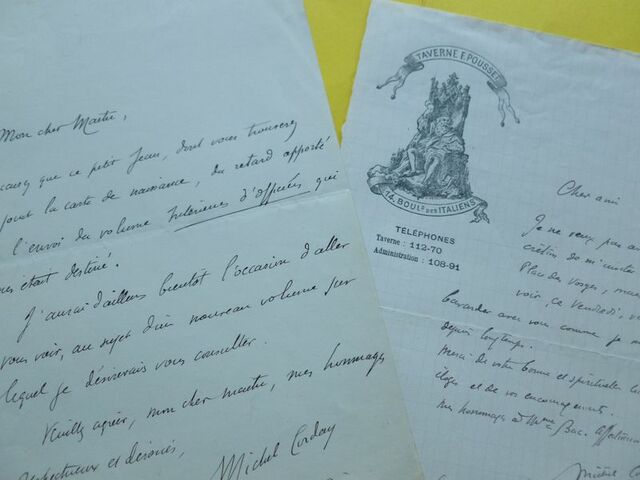 Mon cher Maître,
que ce petit Jean, dont vous trouverez
joint la carte de naissance, du retard apporté
l'envoi du volume Intérieurs d'officiers qui
était destiné.
J'aurai d'ailleurs bientôt l'occasion d'aller
vous voir, au sujet d'un nouveau volume sur
lequel je désirerais vous consulter.
Veuillez agréer, mon cher maître, mes hommages
respectueux et dévoués,
Michel Corday
TAVERNE F. POUSSET
14, BOULD DES ITALIENS
TÉLÉPHONES
Taverne : 112-70
Administration : 108-91
Cher ami
Je ne veux pas
Place des Vosges,
voir, ce Vendredi,
bavarder avec vous comme je
depuis longtemps.
Merci de votre bonne et spirituelle
éloges et de vos encouragements.
Mes hommages à Mme Bac.
Michel